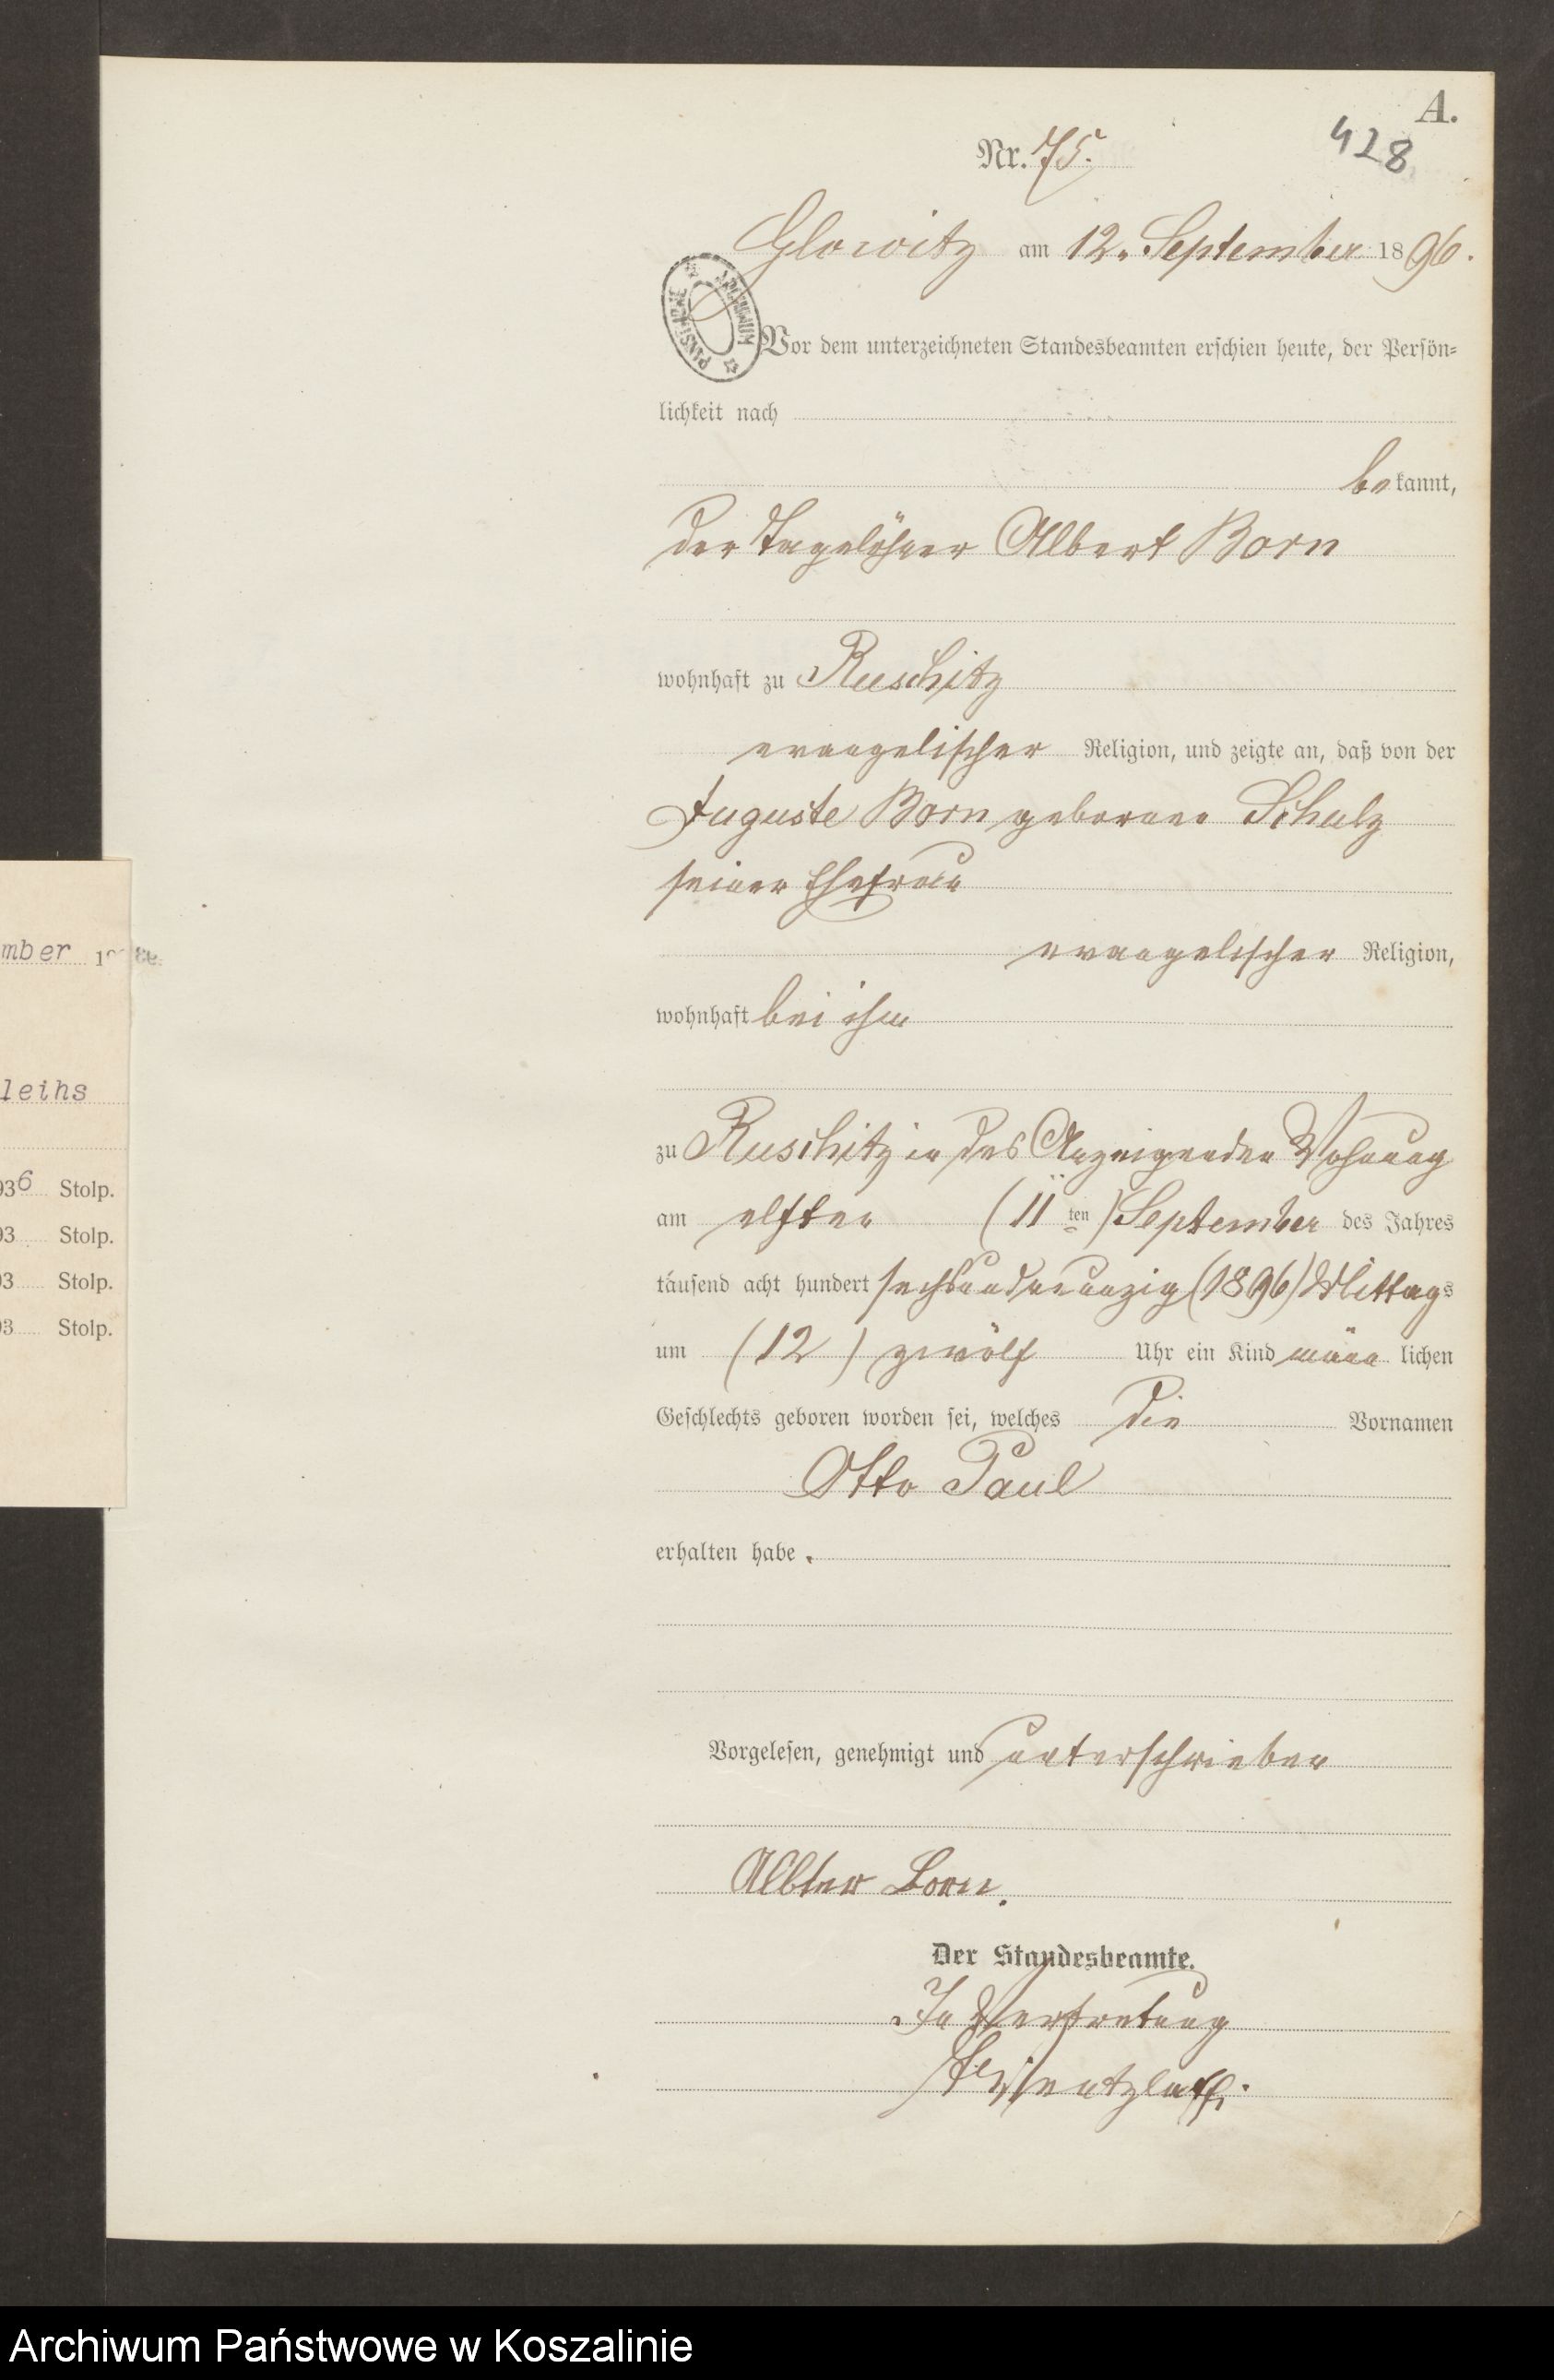 A.
428
Nr. 75.
Glowitz am 12. September 1896.
ARCHIWUM PAŃSTWOWE
Vor dem unterzeichneten Standesbeamten erschien heute, der Persön-
lichkeit nach
bekannt,
der Tagelöhner Albert Born
wohnhaft zu Ruschitz
evangelischer Religion, und zeigte an, daß von der
Auguste Born geborene Schulz
seiner Ehefrau
evangelischer Religion,
wohnhaft bei ihm
zu Ruschitz in des Anzeigenden Wohnung
am elften (11 ten) September des Jahres
tausend acht hundert sechsundneunzig (1896) Mittags
um (12) zwölf Uhr ein Kind männlichen
Geschlechts geboren worden sei, welches die Vornamen
Otto Paul
erhalten habe.
Vorgelesen, genehmigt und unterschrieben
Albter Born.
Der Standesbeamte.
In Vertretung
mber 19
leihs
936 Stolp.
93 Stolp.
93 Stolp.
93 Stolp.
Archiwum Państwowe w Koszalinie